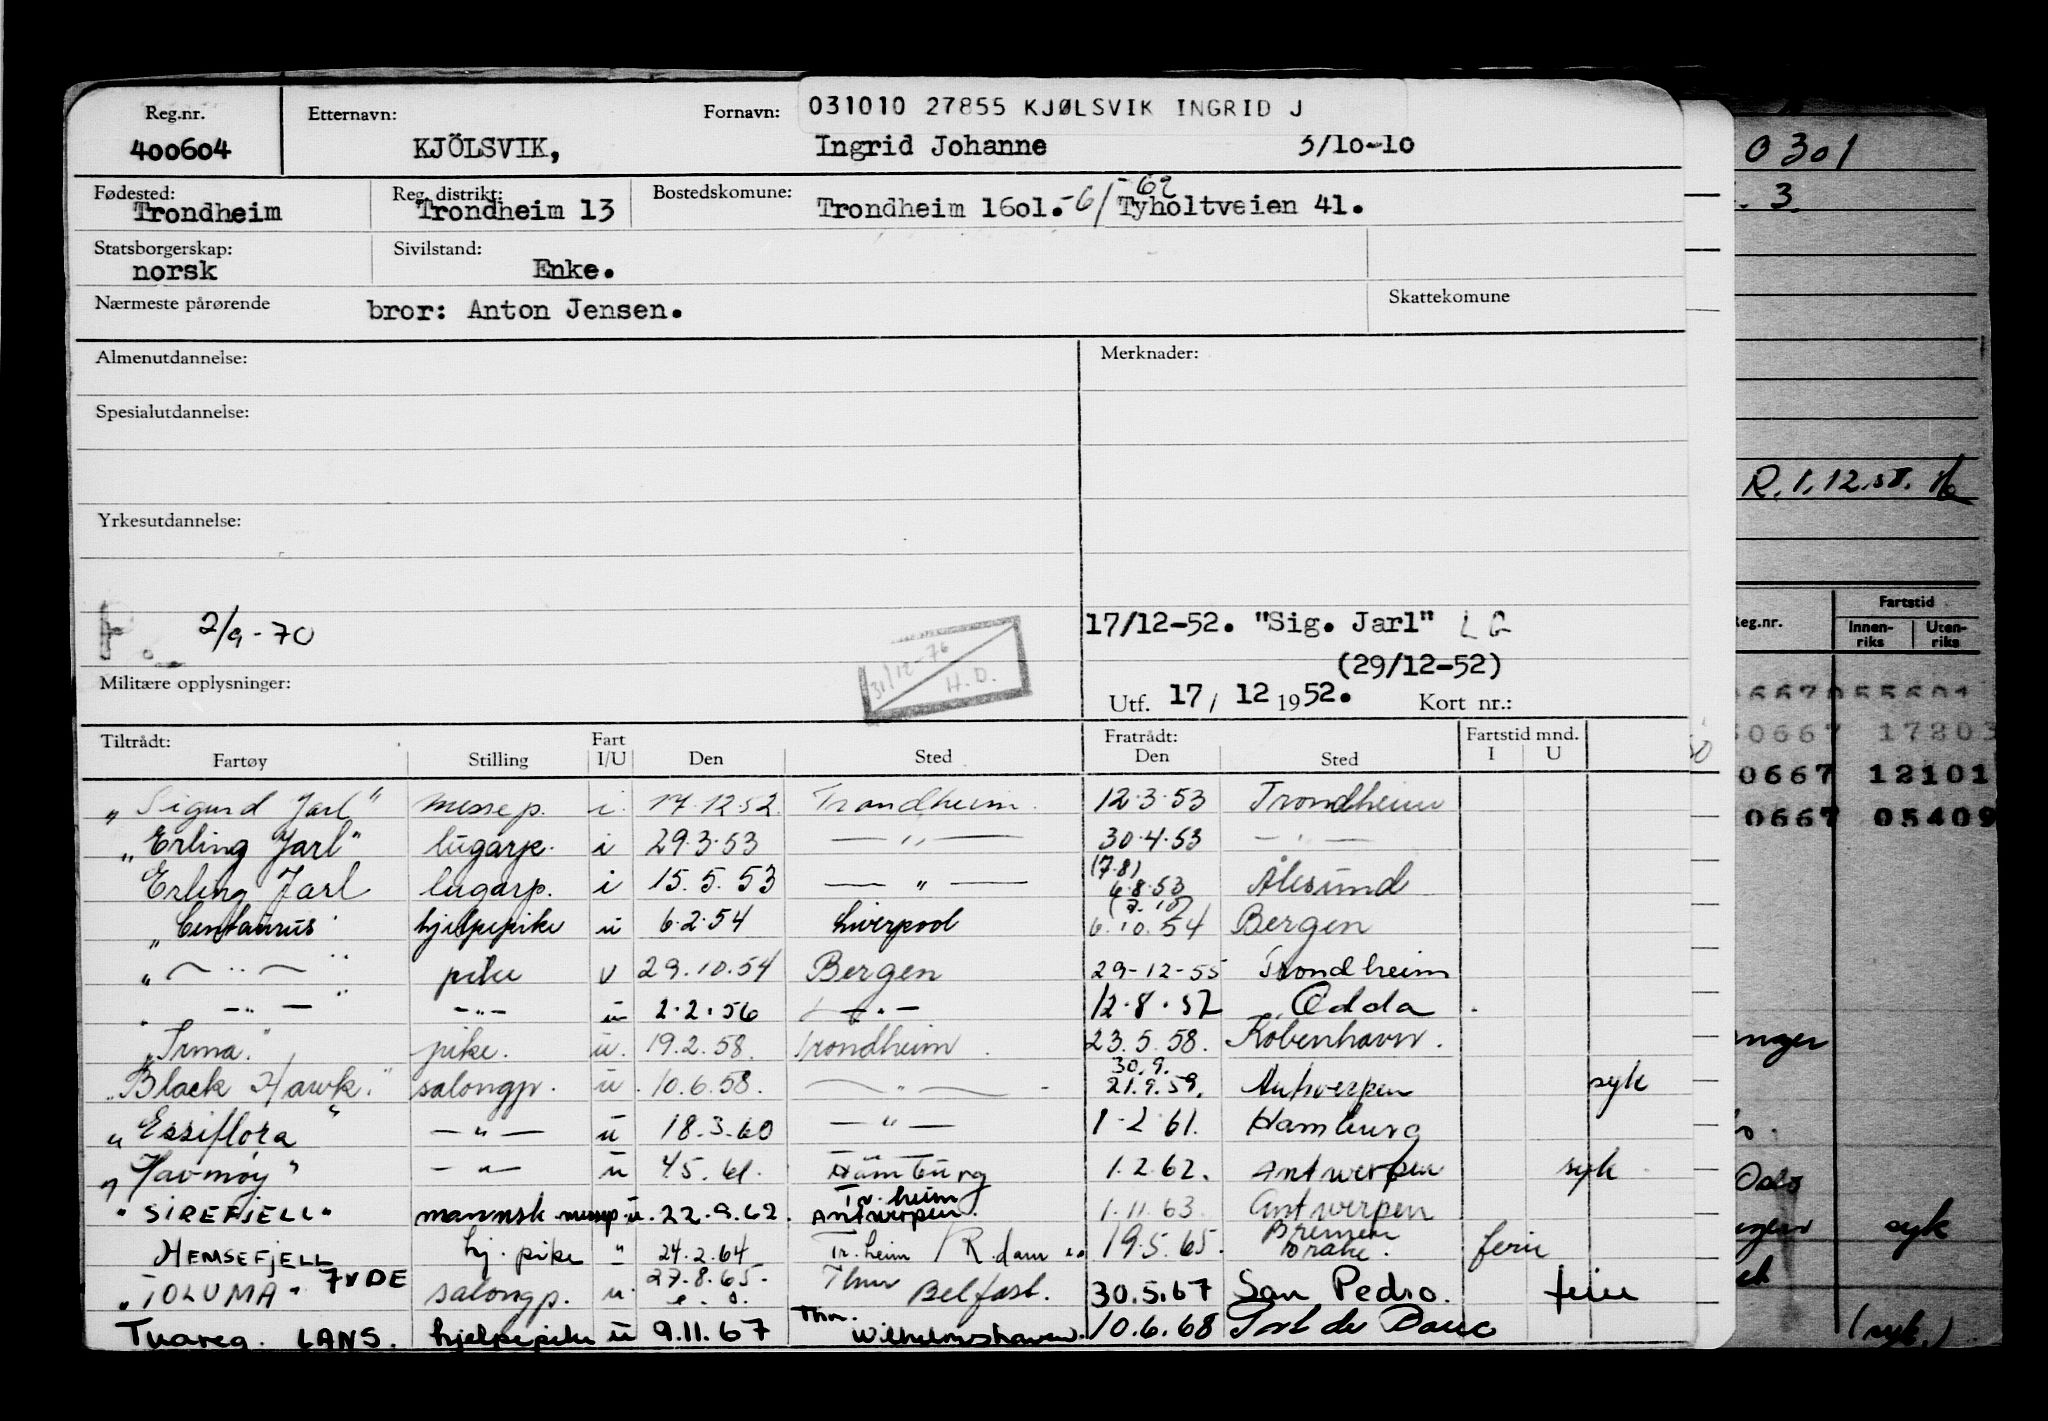 031010 27855 KJØLSVIK INGRID J
Reg.nr. Etternavn: Fornavn:
400604 KJÖLSVIK, Ingrid Johanne 3/10-10
Fødested: Reg. distrikt: Bostedskomune: -62
Trondheim Trondheim 13 Trondheim 1601. -61 Tyholtveien 41.
Statsborgerskap: Sivilstand:
norsk Enke.
Nærmeste pårørende bror: Anton Jensen. Skattekomune
Almenutdannelse: Merknader:
Spesialutdannelse:
Yrkesutdannelse:
2/9-70 17/12-52. "Sig. Jarl"
31/12-76 H.D. (29/12-52)
Militære opplysninger: Utf. 17/ 12 1952. Kort nr.:
Tiltrådt: Fart Fratrådt: Fartstid mnd.
Fartøy Stilling I/U Den Sted Den Sted I U
"Sigurd Jarl" messep. i. 17.12.52. Trondheim. 12.3.53 Trondheim
"Erling Jarl" lugarp. i 29.3.53 — " — 30.4.53 — " —
(7.8)
Erling Jarl lugarp. i 15.5.53 — " — 6.8.53 Ålesund
(7.10)
"Centaurus" hjelpepike u 6.2.54 Liverpool 6.10.54 Bergen
" — " — " pike u 29.10.54 Bergen 29-12-55 Trondheim
— " — " — " — u 2.2.56 — " — 12.8.57 Odda
"Irma." pike. u. 19.2.58. Trondheim. 23.5.58. København.
30.9.
"Black Hawk." salongp. u. 10.6.58. — " — 21.9.59. Antwerpen syk
"Essiflora" — " — u 18.3.60 — " — 1-2.61. Hamburg
"Havmøy" — " — u 4.5.61. Hamburg 1.2.62. Antwerpen syk
Tr.heim
"SIREFJELL" mannsk. messep. u. 22.9.62. Antwerpen. 1.11.63. Antwerpen
Bremen
HEMSEFJELL hj. pike " 24.2.64 Tr.heim / R.dam 19.5.65. Brake. ferie
7vDE 27.8.65.
"TOLUMA" salongp. u. Thm Belfast. 30.5.67 San Pedro. ferie
Tuareg. LANS. hjelpepike u 9.11.67 Thm. Wilhelmshaven. 10.6.68 Port de Bouc
0301
3.
R. 1.12.58.
Reg.nr. Fartstid
Innen-riks Uten-riks
0667055601
0667 17203
0667 12101
0667 05409
Oslo
syk
(syk.)